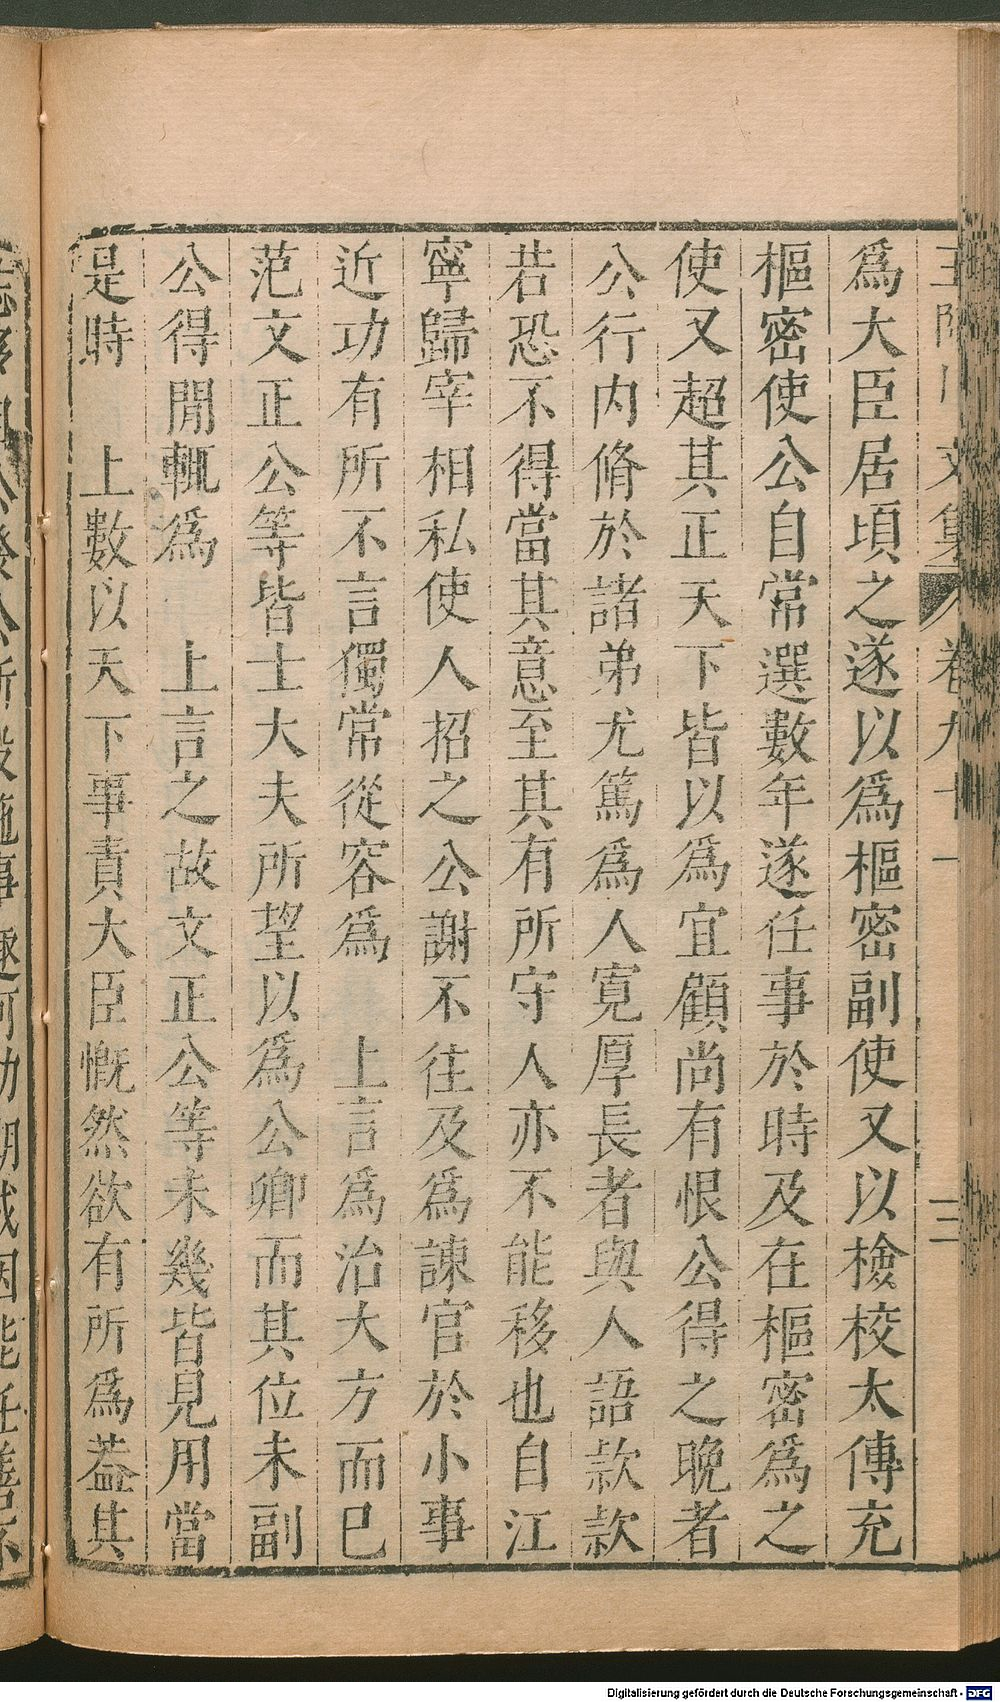 爲大臣居頃之遂以爲樞密副使又以檢校太傅充
樞密使公自常選數年遂任事於時及在樞密爲之
使又超其正天下皆以爲宜顧尚有恨公得之晚者
公行内脩於諸弟尤篤爲人寛厚長者與人語款款
若恐不得當其意至其有所守人亦不能移也自江
寧歸宰相私使人招之公謝不往及爲諫官於小事
近功有所不言獨常從容爲 上言爲治大方而已
范文正公等皆士大夫所望以爲公卿而其位未副
公得閒輒爲 上言之故文正公等未幾皆見用當
是時 上數以天下事責大臣慨然欲有所爲葢其
Digitalisierung gefördert durch die Deutsche Forschungsgemeinschaft - DFG